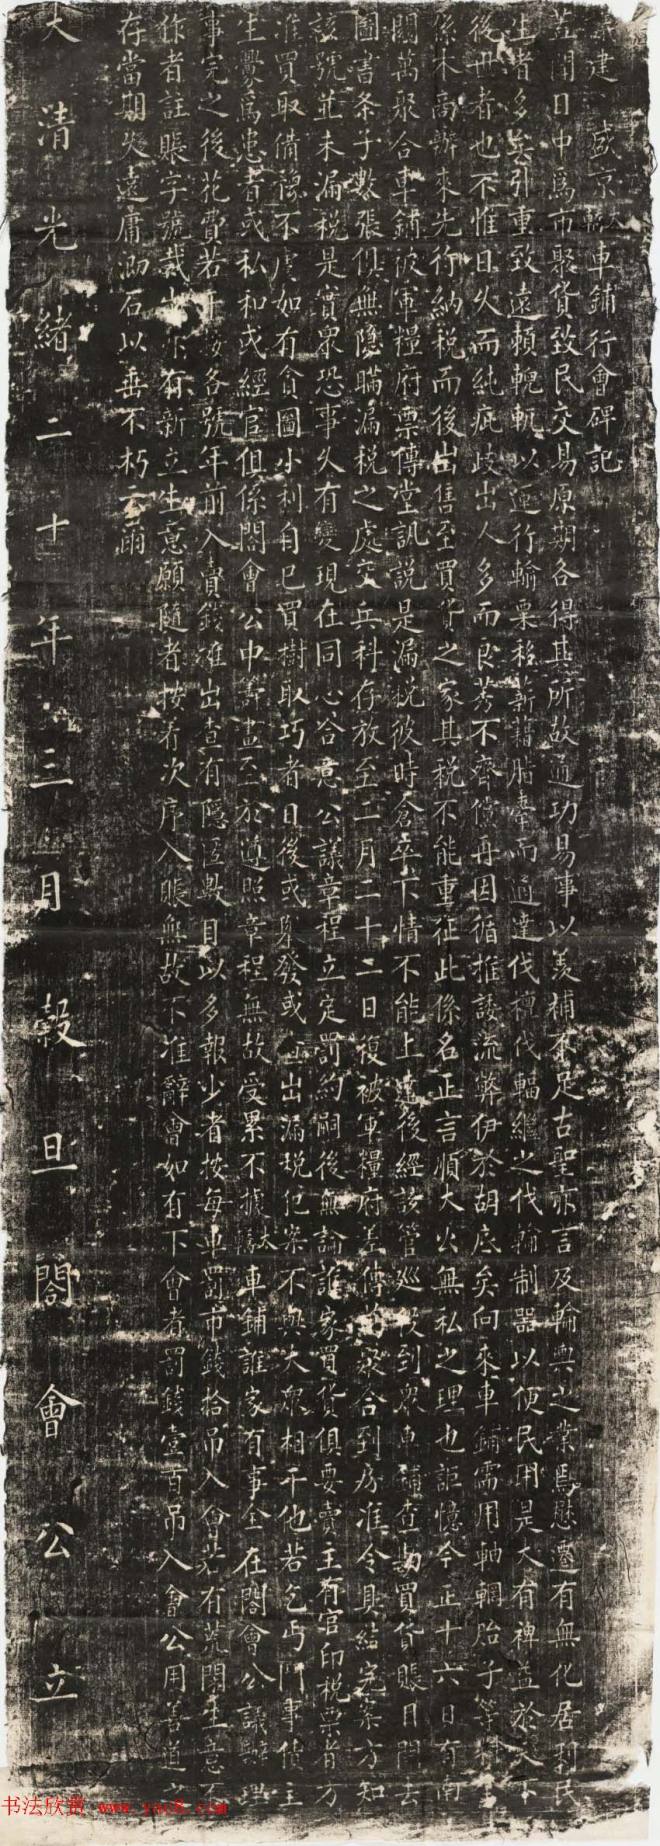 建 盛京大轎車鋪行會碑記
蓋聞日中爲市聚貨致民交易原期各得其所故通功易事以羨補不足古聖亦言及輪輿之業焉懋遷有無化居利民
生者多矣引重致遠賴輗軏以運行輸粟移薪藉脂牽而通達伐檀伐輻繼之伐輪制器以便民用是大有裨益於天下
後世者也不惟日久而純疵歧出人多而良莠不齊儻再因循推諉流弊伊於胡底矣向來車鋪需用軸輞胎子等料
係木商辦來先行納稅而後出售至買貨之家其稅不能重征此係名正言順大公無私之理也詎憶今正十六日有
關萬聚合車鋪被軍糧府票傳堂訊說是漏稅彼時倉卒下情不能上達後經該管巡役到眾車鋪查勘買貨賬目問去
圖書条子數張俱無隱瞞漏稅之處交兵科存放至二月二十二日復被軍糧府差傳萬聚合到房准令具結完案方知
該號並未漏稅是實眾恐事久有變現在同心合意公議章程立定罰約嗣後無論誰家買貨俱要賣主有官印稅票者方
准買取備誇不虞如有貪圖小利自已買樹取巧者日後或案發或查出漏稅犯案不與大眾相干他若乞丐鬥事借主
生釁爲患者或私和或經官但係閤會公中籌畫至於遵照章程無故受累不拘大轎車鋪誰家有事仝在閤會公議辦理
事完之後花費若干按各號年前入賣錢攤出查有隱匿數目以多報少者按每車罰市錢拾吊入會若有荒閉生意不
作者註賬字號裁去亦有新立生意願隨者按着次序入賬無故不准辭會如有下會者罰錢壹百吊入會公用善道之
存當期久遠庸泐石以垂不朽云爾
大清光緒二十年三月穀旦閤會公立
书法欣赏 www.yac8.com